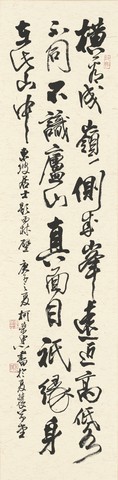 橫看成嶺側成峯遠近高低各
不同不識廬山真面目祇緣身
在此山中
東坡居士題西林壁